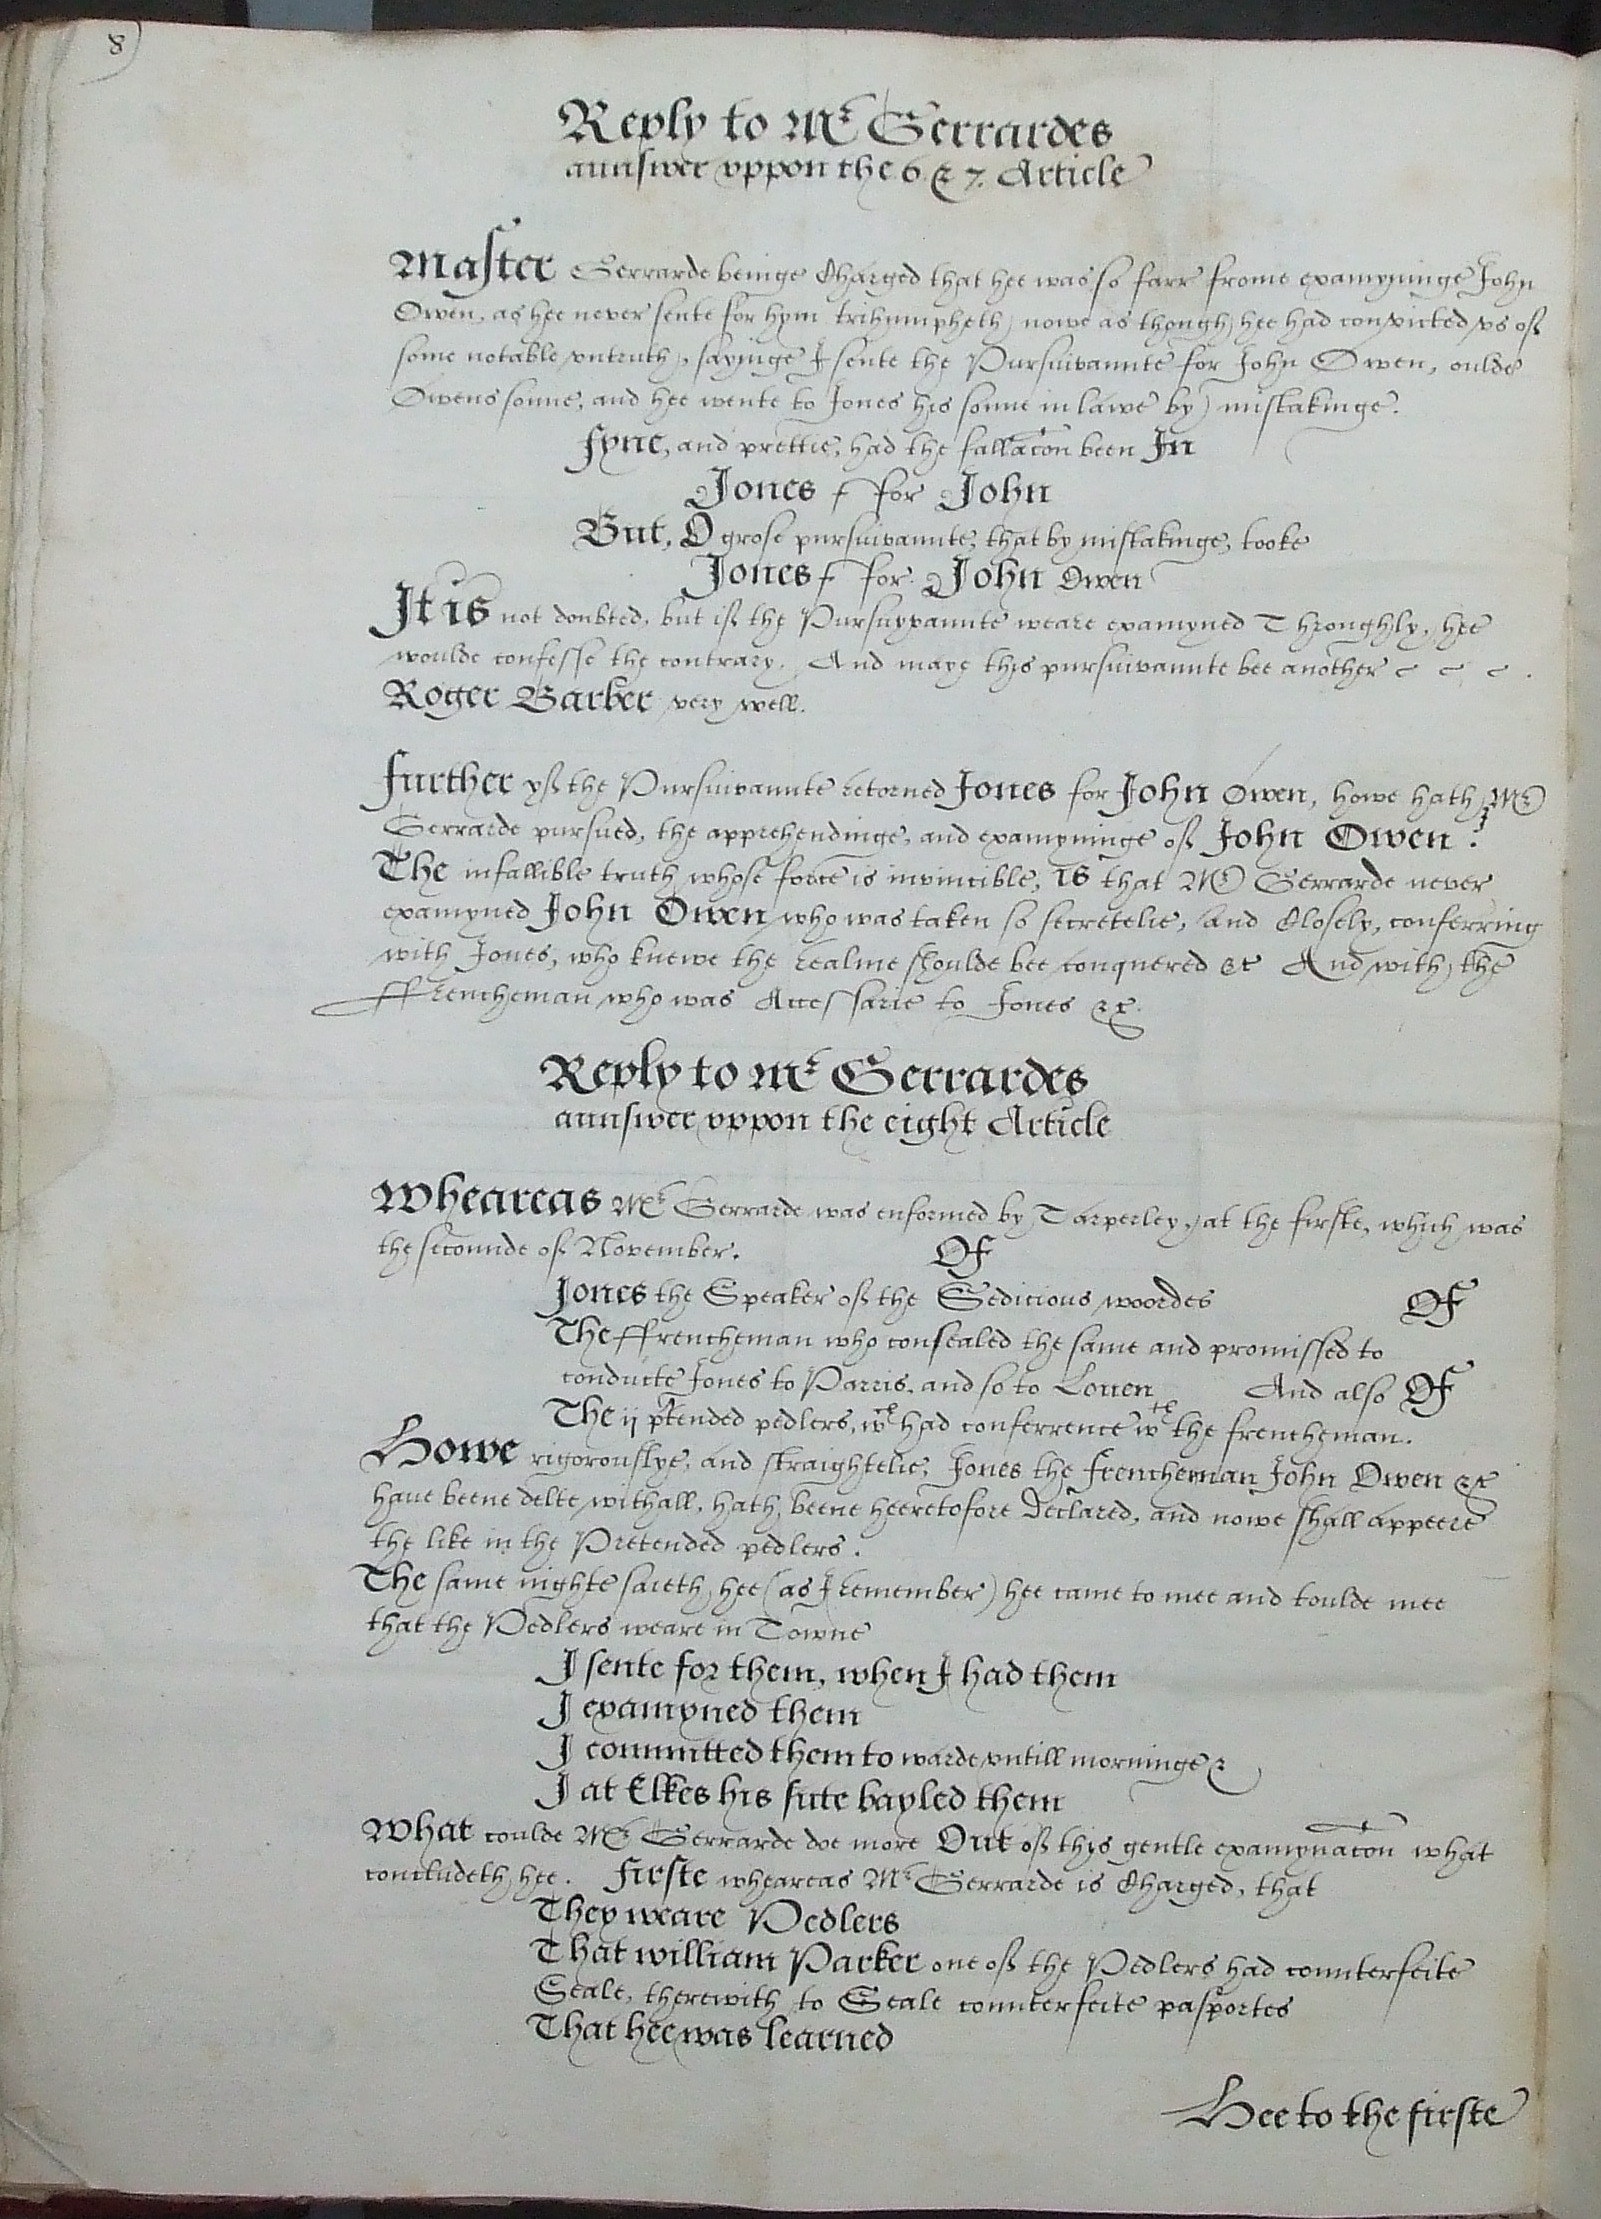 8
Reply to Mr Gerrardes
aunswer vppon the 6 & 7. Article
Master Gerrarde beinge Charged that hee was so farr frome examyninge John
Owen, as hee never sente for hym trihumpheth, nowe as though hee had convicted vs of
some notable vntruth, sayinge I sente the Pursuivannte for John Owen, oulde
Owens sonne, and hee wente to Jones his sonne in lawe by mistakinge.
fyne, and prettie, had the fallacon been In
Jones f for John
But, O grose pursuivannte, that by mistakinge, tooke
Jones f for John Owen
It is not doubted, but if the Pursuyvannte weare examyned Throughly, hee
woulde confesse the contrary. And maye this pursuivannte bee another
Roger Barber very well.
further yf the Pursuivannte retorned Jones for John Owen, howe hath Mr
Gerrarde pursued, the apprehendinge, and examyninge of John Owen ?
The infallible truth whose force is invincible, is that Mr Gerrarde never
examyned John Owen who was taken so secretelie, And Closely, conferring
with Jones, who knewe the realme shoulde bee conquered &c And with the
ffrencheman who was Accessarie to Jones &c.
Reply to Mr Gerrardes
aunswer vppon the eight Article
Wheareas Mr Gerrarde was enformed by Tarperley, at the firste, which was
the seconnde of November. Of
Jones the Speaker of the Sedicious woordes Of
The ffrencheman who consealed the same and promissed to
conducte Jones to Parris, and so to Loven And also Of
The ij ptended pedlers, wch had conferrence wth the frencheman.
Howe rigorouslye, and straightelie, Jones the frencheman John Owen &c
haue beene delte withall, hath beene heeretofore Declared, and nowe shall appeere
the like in the Pretended pedlers.
The same nighte saieth hee (as I remember) hee came to mee and toulde mee
that the Pedlers weare in Towne
I sente for them, when I had them
I examyned them
I committed them to warde vntill morninge
I at Elkes his sute bayled them
What coulde Mr Gerrarde doe more Out of this gentle examynacon what
concludeth hee. firste wheareas Mr Gerrarde is Charged, that
They weare Pedlers
That william Parker one of the Pedlers had counterfeite
Seale, therewith to Seale counterfeite pasportes
That hee was learned
Hee to the firste